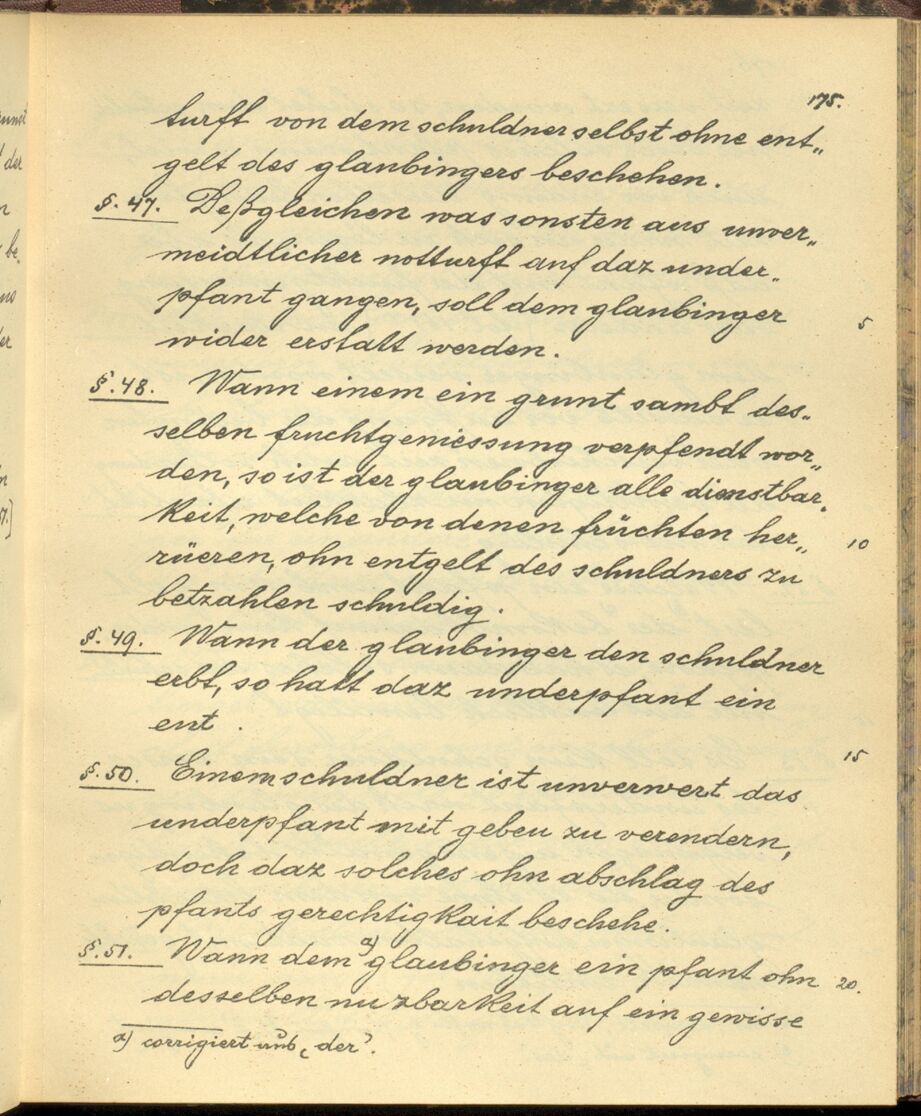 175.
turfft von dem schuldner selbst ohne ent„
gelt des glaubingers beschehen.
§. 47. Deßgleichen was sonsten aus unver„
meidtlicher notturfft auf daz under„
pfant gangen, soll dem glaubinger
5
wider erstatt werden.
§. 48. Wann einem ein grunt sambt des„
selben fruchtgeniessung verpfendt wor„
den, so ist der glaubinger alle dienstbar„
keit, welche von denen früchten her„
10
rüeren, ohn entgelt des schuldners zu
betzahlen schuldig.
§. 49. Wann der glaubinger den schuldner
erbt, so hatt daz underpfant ein
ent.
15
§. 50. Einem schuldner ist unverwert das
underpfant mit gebeu zu verendern,
doch daz solches ohn abschlag des
pfants gerechtigkait beschehe.
§. 51. Wann dem a) glaubinger ein pfant ohn
20.
desselben nuzbarkeit auf ein gewisse
a) corrigiert „der“.